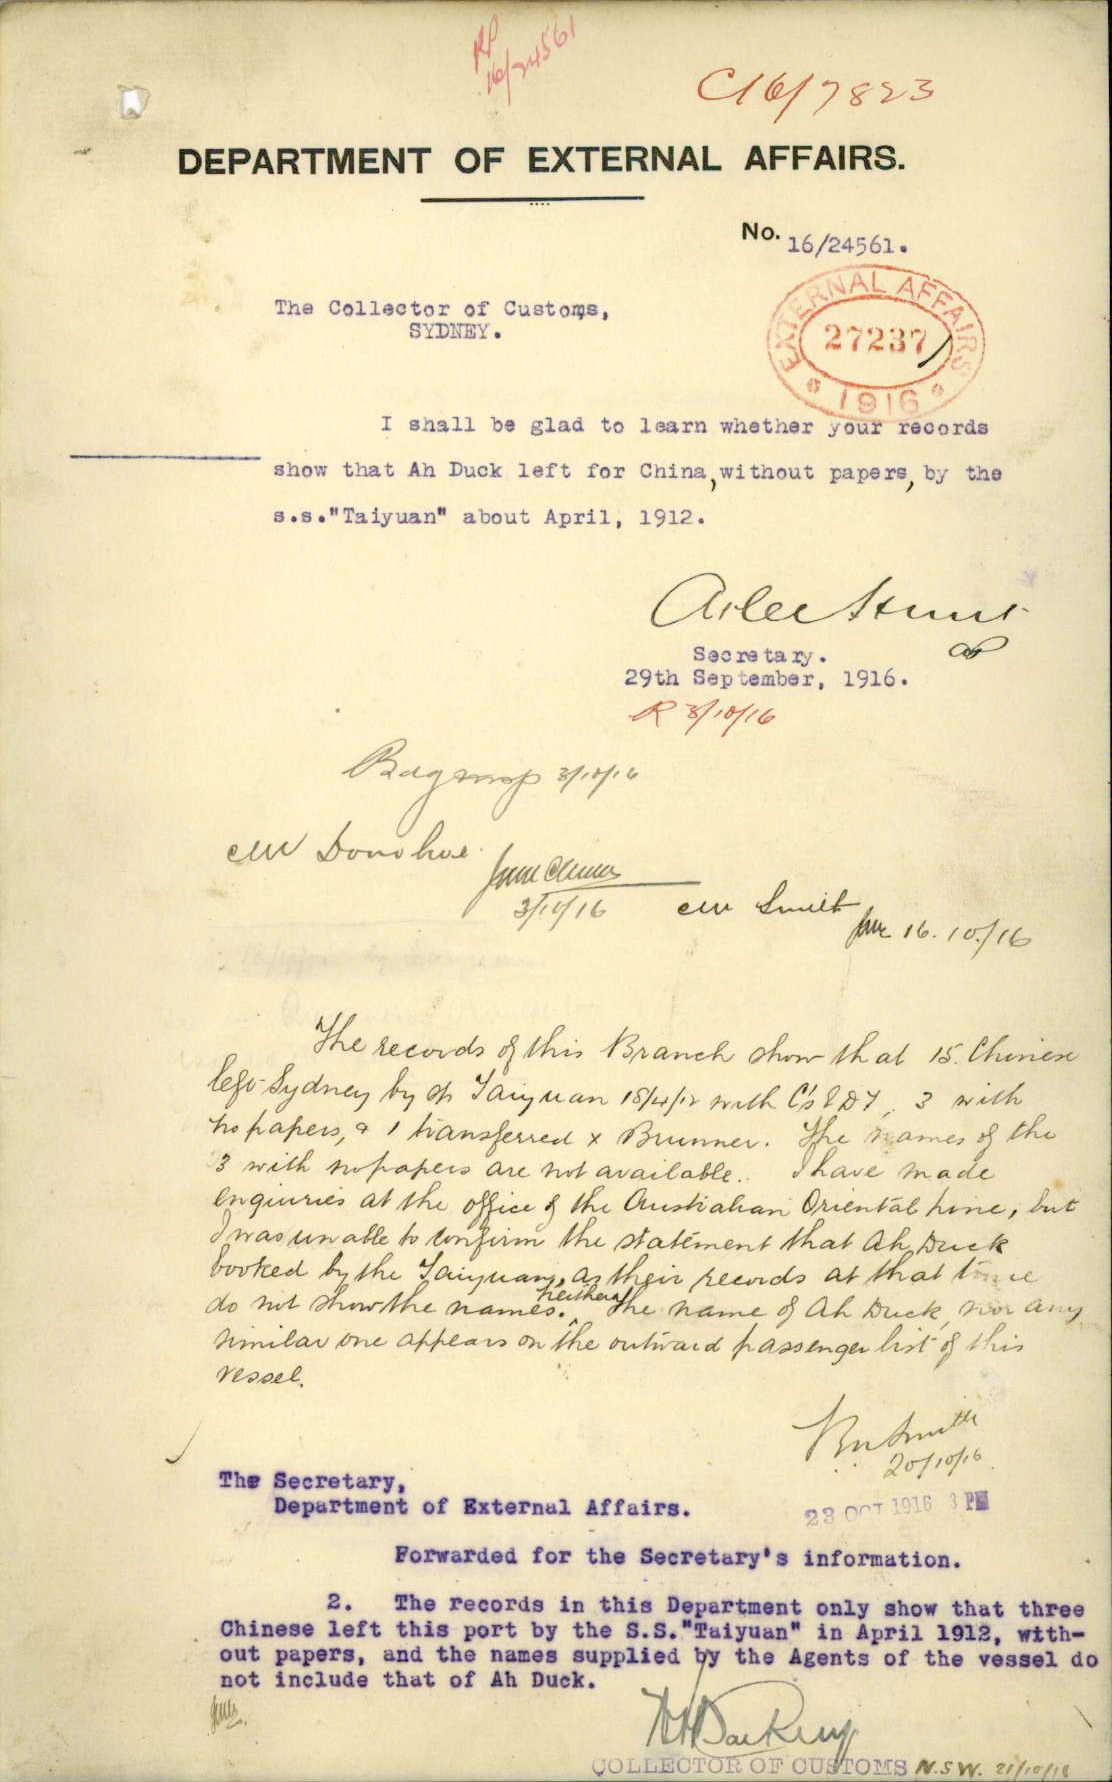 RP
16/24561
C16/7823
DEPARTMENT OF EXTERNAL AFFAIRS.
No. 16/24561.
EXTERNAL AFFAIRS
27237
1916
The Collector of Customs,
SYDNEY.
I shall be glad to learn whether your records
show that Ah Duck left for China, without papers, by the
s.s."Taiyuan" about April, 1912.
Atlee Hunt
Secretary.
29th September, 1916.
R 3/10/16
3/10/16
Mr Donohoe
3/10/16
Mr Smith
16.10/16
The records of this Branch show that 15 Chinese
left Sydney by ss Taiyuan 18/4/12 with C's E D T, 3 with
no papers, & 1 transferred x Brunner. The names of the
3 with no papers are not available. I have made
enquiries at the office of the Australian Oriental Line, but
I was unable to confirm the statement that Ah Duck
booked by the Taiyuan, as their records at that time
do not show the names. neither the name of Ah Duck, nor any
similar one appears on the outward passenger list of this
vessel.
Smith
20/10/16
23 OCT 1916 3 PM
The Secretary,
Department of External Affairs.
Forwarded for the Secretary's information.
2. The records in this Department only show that three
Chinese left this port by the S.S."Taiyuan" in April 1912, with-
out papers, and the names supplied by the Agents of the vessel do
not include that of Ah Duck.
COLLECTOR OF CUSTOMS N.S.W. 21/10/16